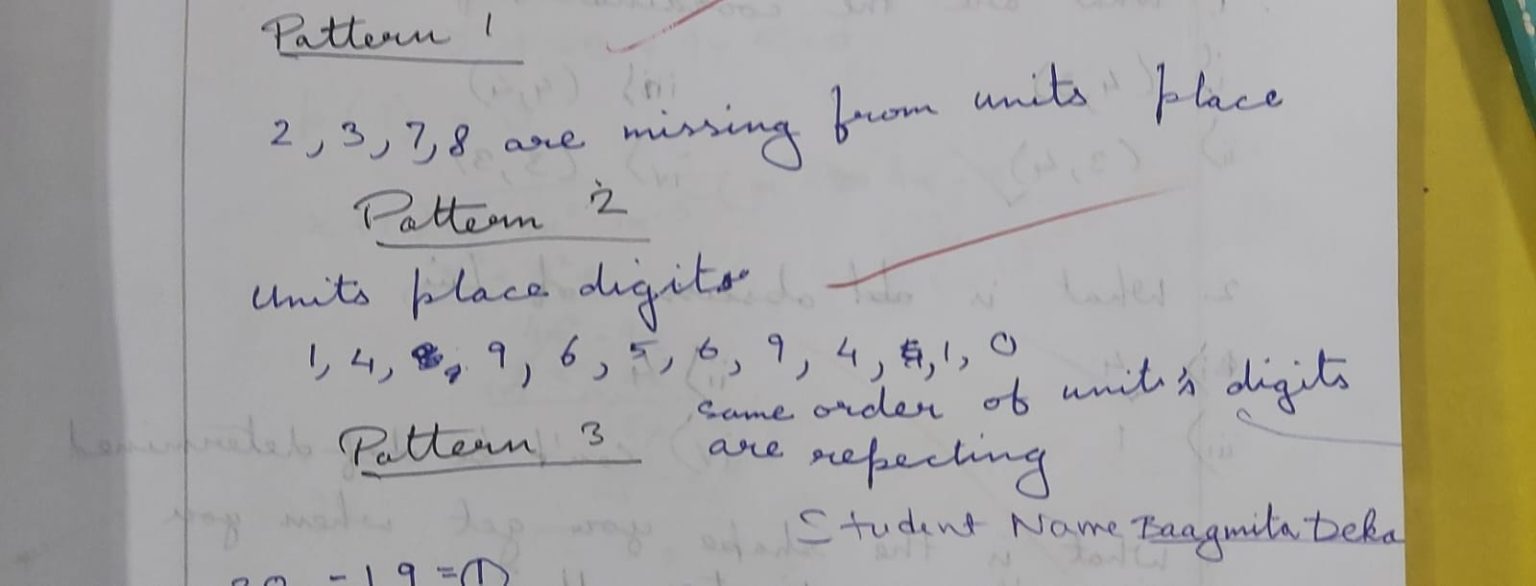 Pattern 1
2, 3, 7, 8 are missing from units place
Pattern 2
Units place digits
1, 4, 9, 6, 5, 6, 9, 4, 1, 0
same order of unit's digits
Pattern 3 are repecting
Student Name Baagmita Deka
- 19 = 1